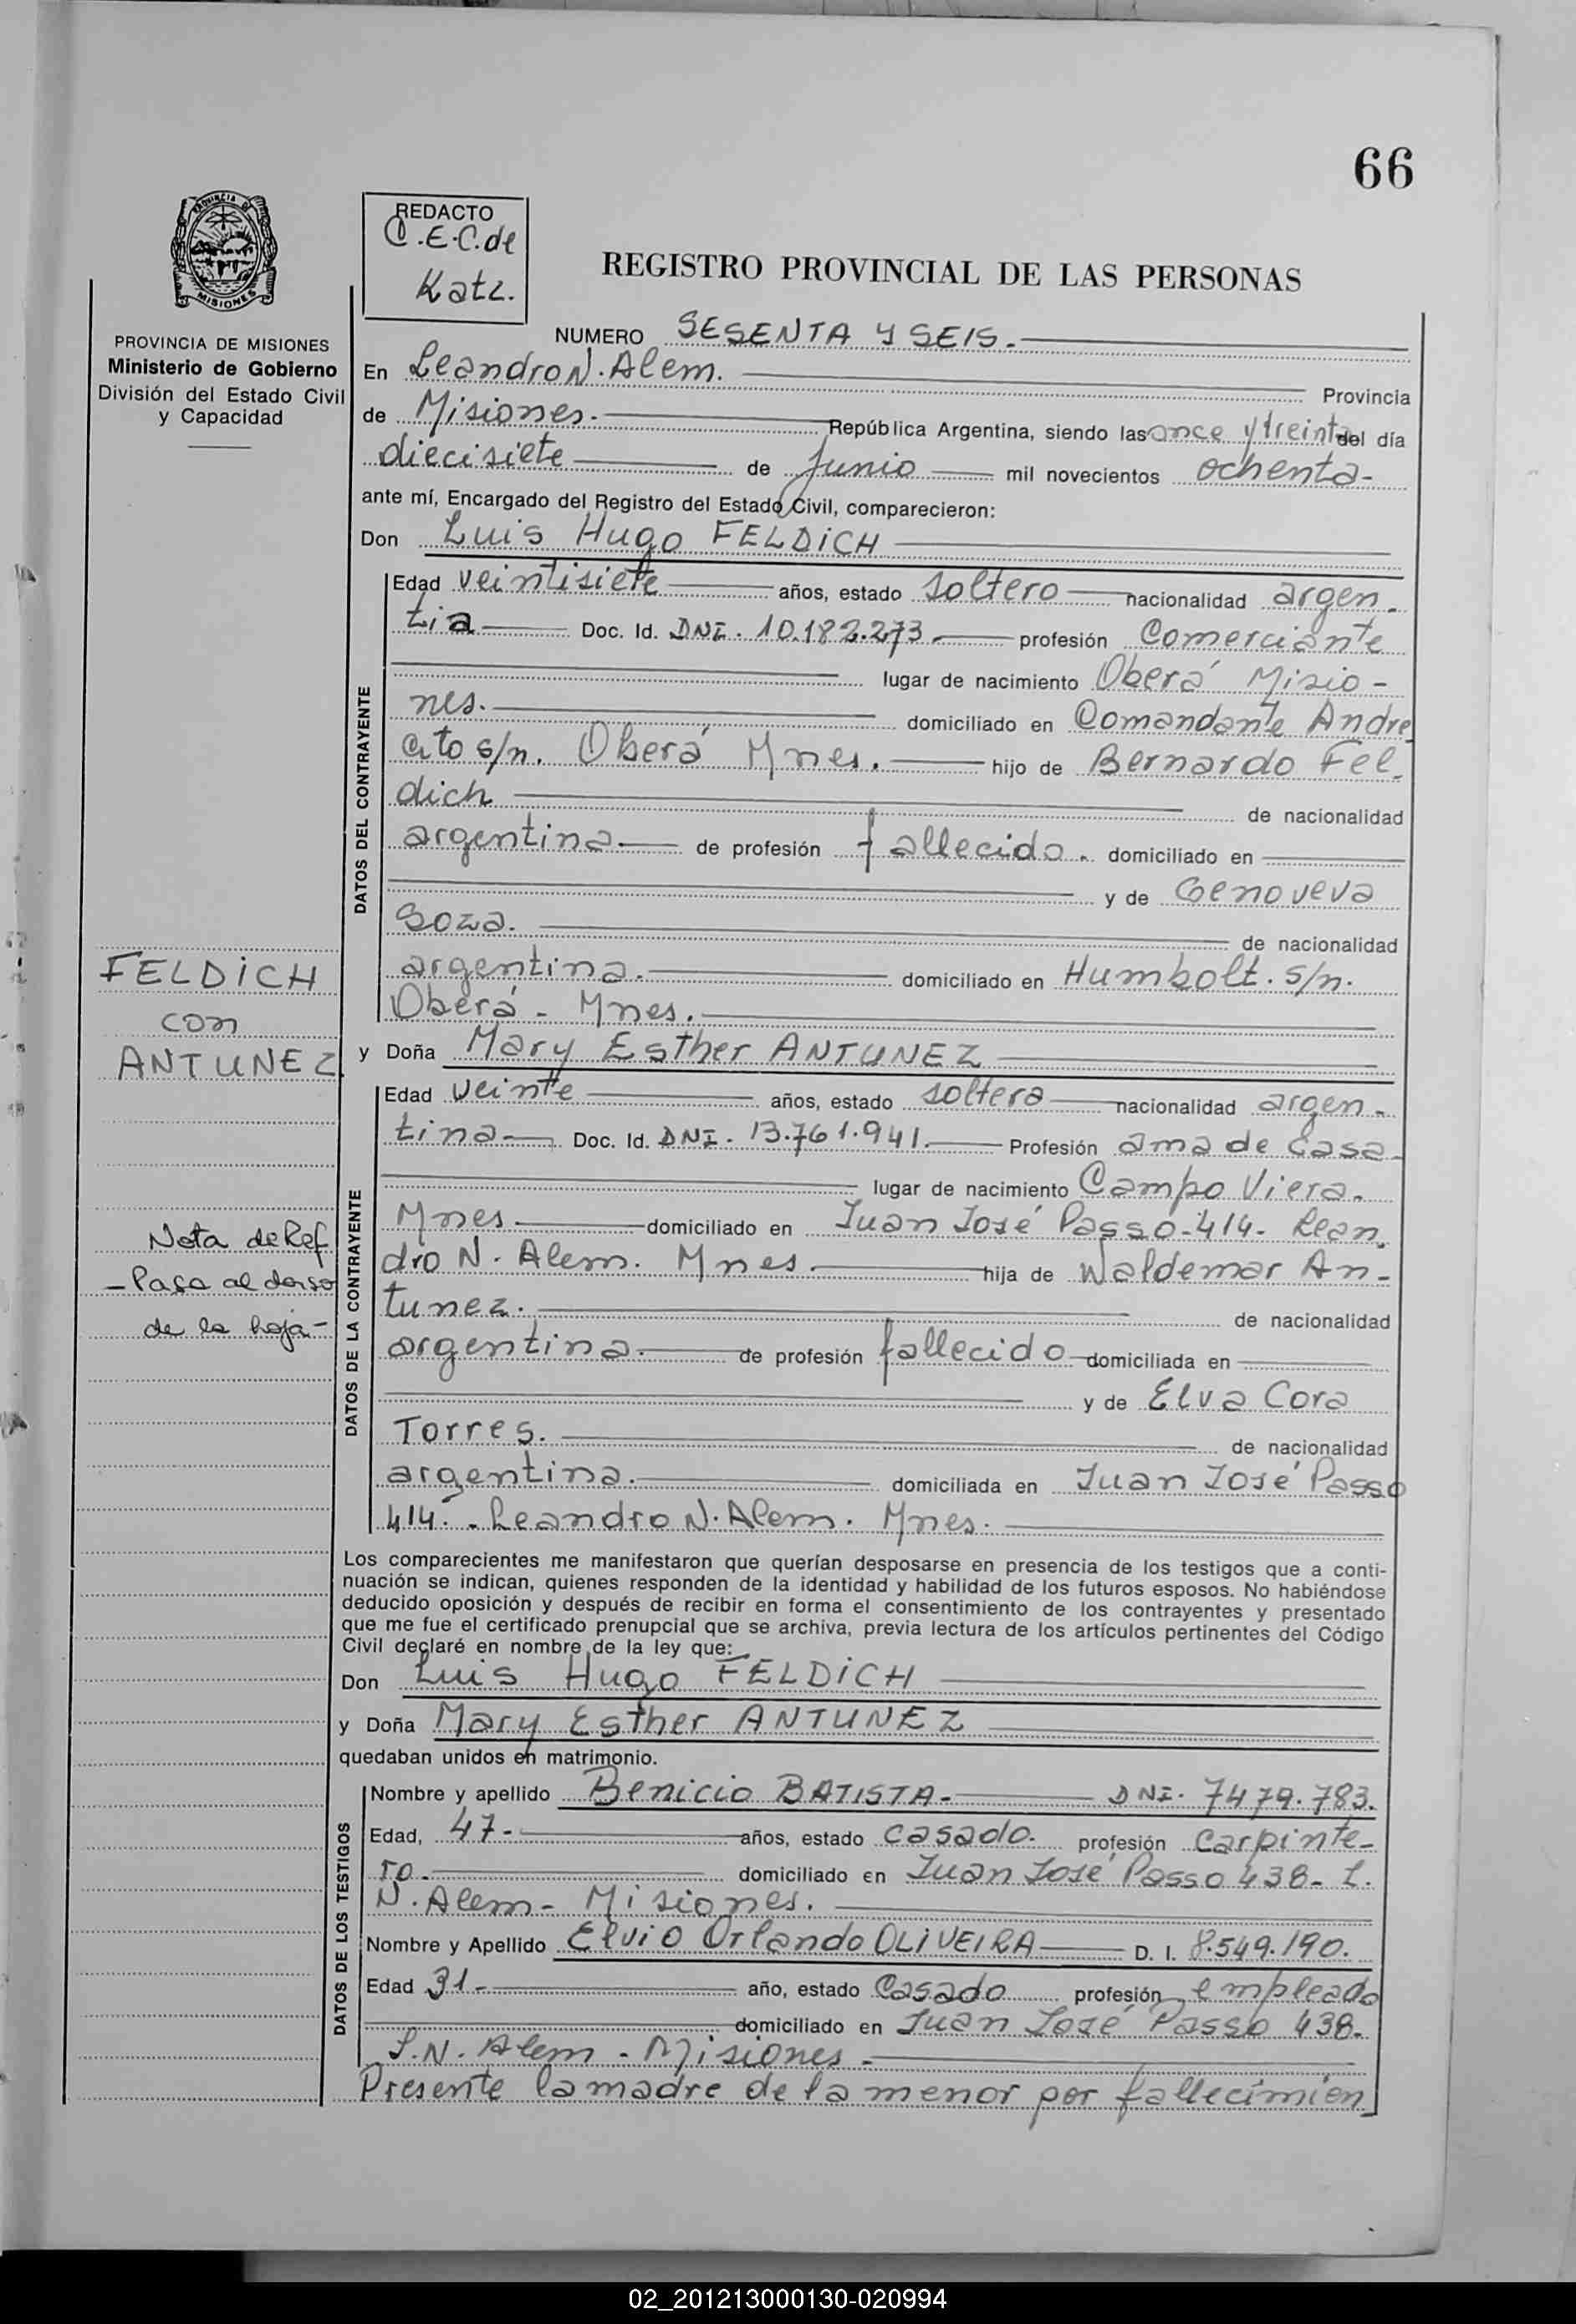 66
REDACTO
C.E.C. de
Katz.
REGISTRO PROVINCIAL DE LAS PERSONAS
PROVINCIA DE MISIONES
Ministerio de Gobierno
División del Estado Civil
y Capacidad
NUMERO SESENTA Y SEIS.-
En Leandro N. Alem. Provincia
de Misiones.- República Argentina, siendo las once y treinta del día
diecisiete de Junio mil novecientos ochenta-
ante mí, Encargado del Registro del Estado Civil, comparecieron:
Don Luis Hugo FELDICH
DATOS DEL CONTRAYENTE
Edad veintisiete años, estado soltero nacionalidad argen-
tia Doc. Id. DNI. 10.182.273.- profesión Comerciante
lugar de nacimiento Oberá Misio-
nes. domiciliado en Comandante Andre
cito s/n. Oberá Mnes. hijo de Bernardo Fel-
dich de nacionalidad
argentina.- de profesión fallecido. domiciliado en
y de Genoveva
Soza. de nacionalidad
argentina. domiciliado en Humbolt. s/n.
Oberá - Mnes.
FELDICH
con
ANTUNEZ.
y Doña Mary Esther ANTUNEZ
DATOS DE LA CONTRAYENTE
Edad veinte años, estado soltera nacionalidad argen-
tina Doc. Id. DNI. 13.761.941.- Profesión ama de casa-
lugar de nacimiento Campo Viera.
Mnes domiciliado en Juan José Passo-414- Lean.
dro N. Alem. Mnes. hija de Waldemar An-
tunez. de nacionalidad
argentina. de profesión fallecido domiciliada en
y de Elva Cora
Torres. de nacionalidad
argentina. domiciliada en Juan José Passo
414.- Leandro N. Alem. Mnes.
Nota de Ref
-Pasa al dorso
de la hoja-
Los comparecientes me manifestaron que querían desposarse en presencia de los testigos que a conti-
nuación se indican, quienes responden de la identidad y habilidad de los futuros esposos. No habiéndose
deducido oposición y después de recibir en forma el consentimiento de los contrayentes y presentado
que me fue el certificado prenupcial que se archiva, previa lectura de los artículos pertinentes del Código
Civil declaré en nombre de la ley que:
Don Luis Hugo FELDICH
y Doña Mary Esther ANTUNEZ
quedaban unidos en matrimonio.
DATOS DE LOS TESTIGOS
Nombre y apellido Benicio BATISTA- DNI. 7479.783.
Edad, 47- años, estado casado. profesión carpinte-
ro- domiciliado en Juan José Passo 438- L.
N. Alem- Misiones.
Nombre y Apellido Elvio Orlando OLIVEIRA D. I. 8.549.190.
Edad 31- año, estado Casado profesión empleado
domiciliado en Juan José Passo 438-
L.N. Alem - Misiones-
Presente la madre de la menor por fallecimien-
02_201213000130-020994